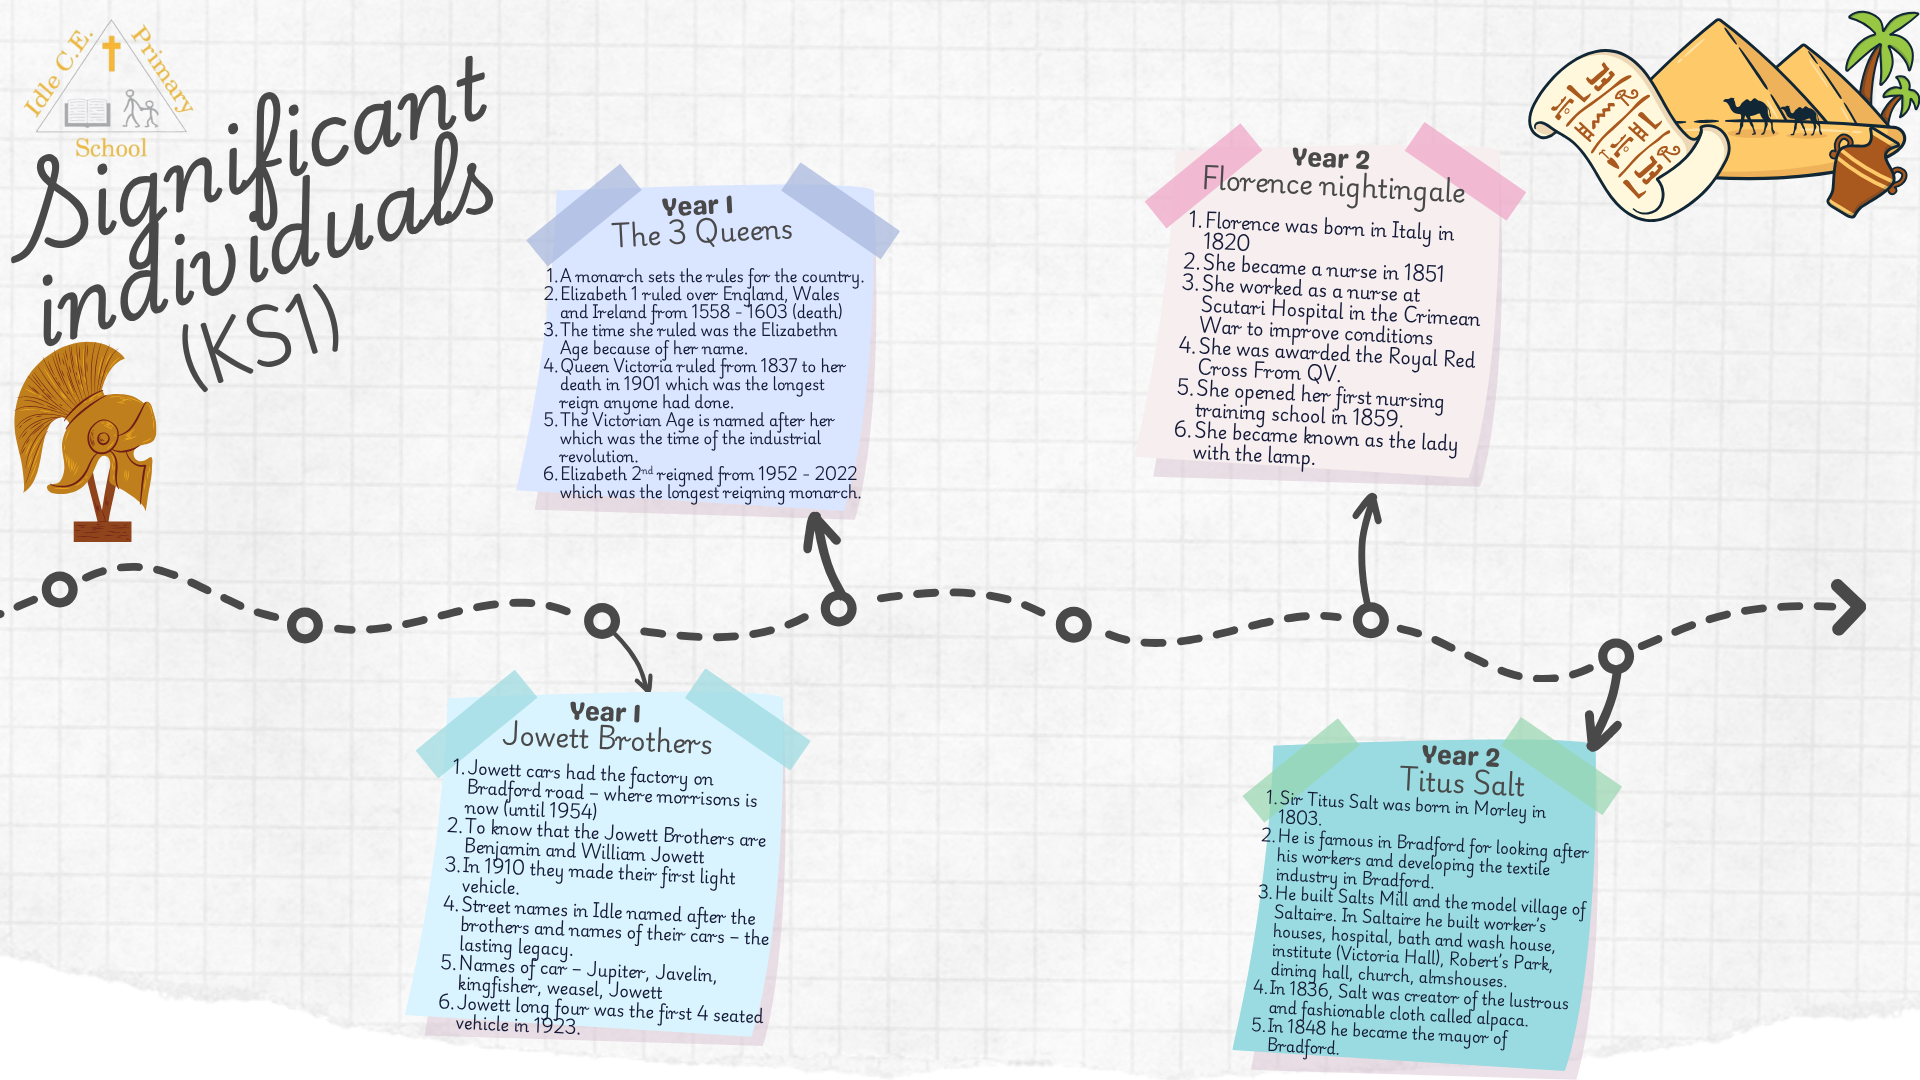 Idle C.E.
Primary
School
Significant
individuals
(KS1)
Year 1
The 3 Queens
1. A monarch sets the rules for the country.
2. Elizabeth 1 ruled over England, Wales
and Ireland from 1558 - 1603 (death)
3. The time she ruled was the Elizabethn
Age because of her name.
4. Queen Victoria ruled from 1837 to her
death in 1901 which was the longest
reign anyone had done.
5. The Victorian Age is named after her
which was the time of the industrial
revolution.
6. Elizabeth 2nd reigned from 1952 - 2022
which was the longest reigning monarch.
Year 2
Florence nightingale
1. Florence was born in Italy in
1820
2. She became a nurse in 1851
3. She worked as a nurse at
Scutari Hospital in the Crimean
War to improve conditions
4. She was awarded the Royal Red
Cross From QV.
5. She opened her first nursing
training school in 1859.
6. She became known as the lady
with the lamp.
Year 1
Jowett Brothers
1. Jowett cars had the factory on
Bradford road – where morrisons is
now (until 1954)
2. To know that the Jowett Brothers are
Benjamin and William Jowett
3. In 1910 they made their first light
vehicle.
4. Street names in Idle named after the
brothers and names of their cars – the
lasting legacy.
5. Names of car – Jupiter, Javelin,
kingfisher, weasel, Jowett
6. Jowett long four was the first 4 seated
vehicle in 1923.
Year 2
Titus Salt
1. Sir Titus Salt was born in Morley in
1803.
2. He is famous in Bradford for looking after
his workers and developing the textile
industry in Bradford.
3. He built Salts Mill and the model village of
Saltaire. In Saltaire he built worker's
houses, hospital, bath and wash house,
institute (Victoria Hall), Robert's Park,
dining hall, church, almshouses.
4. In 1836, Salt was creator of the lustrous
and fashionable cloth called alpaca.
5. In 1848 he became the mayor of
Bradford.